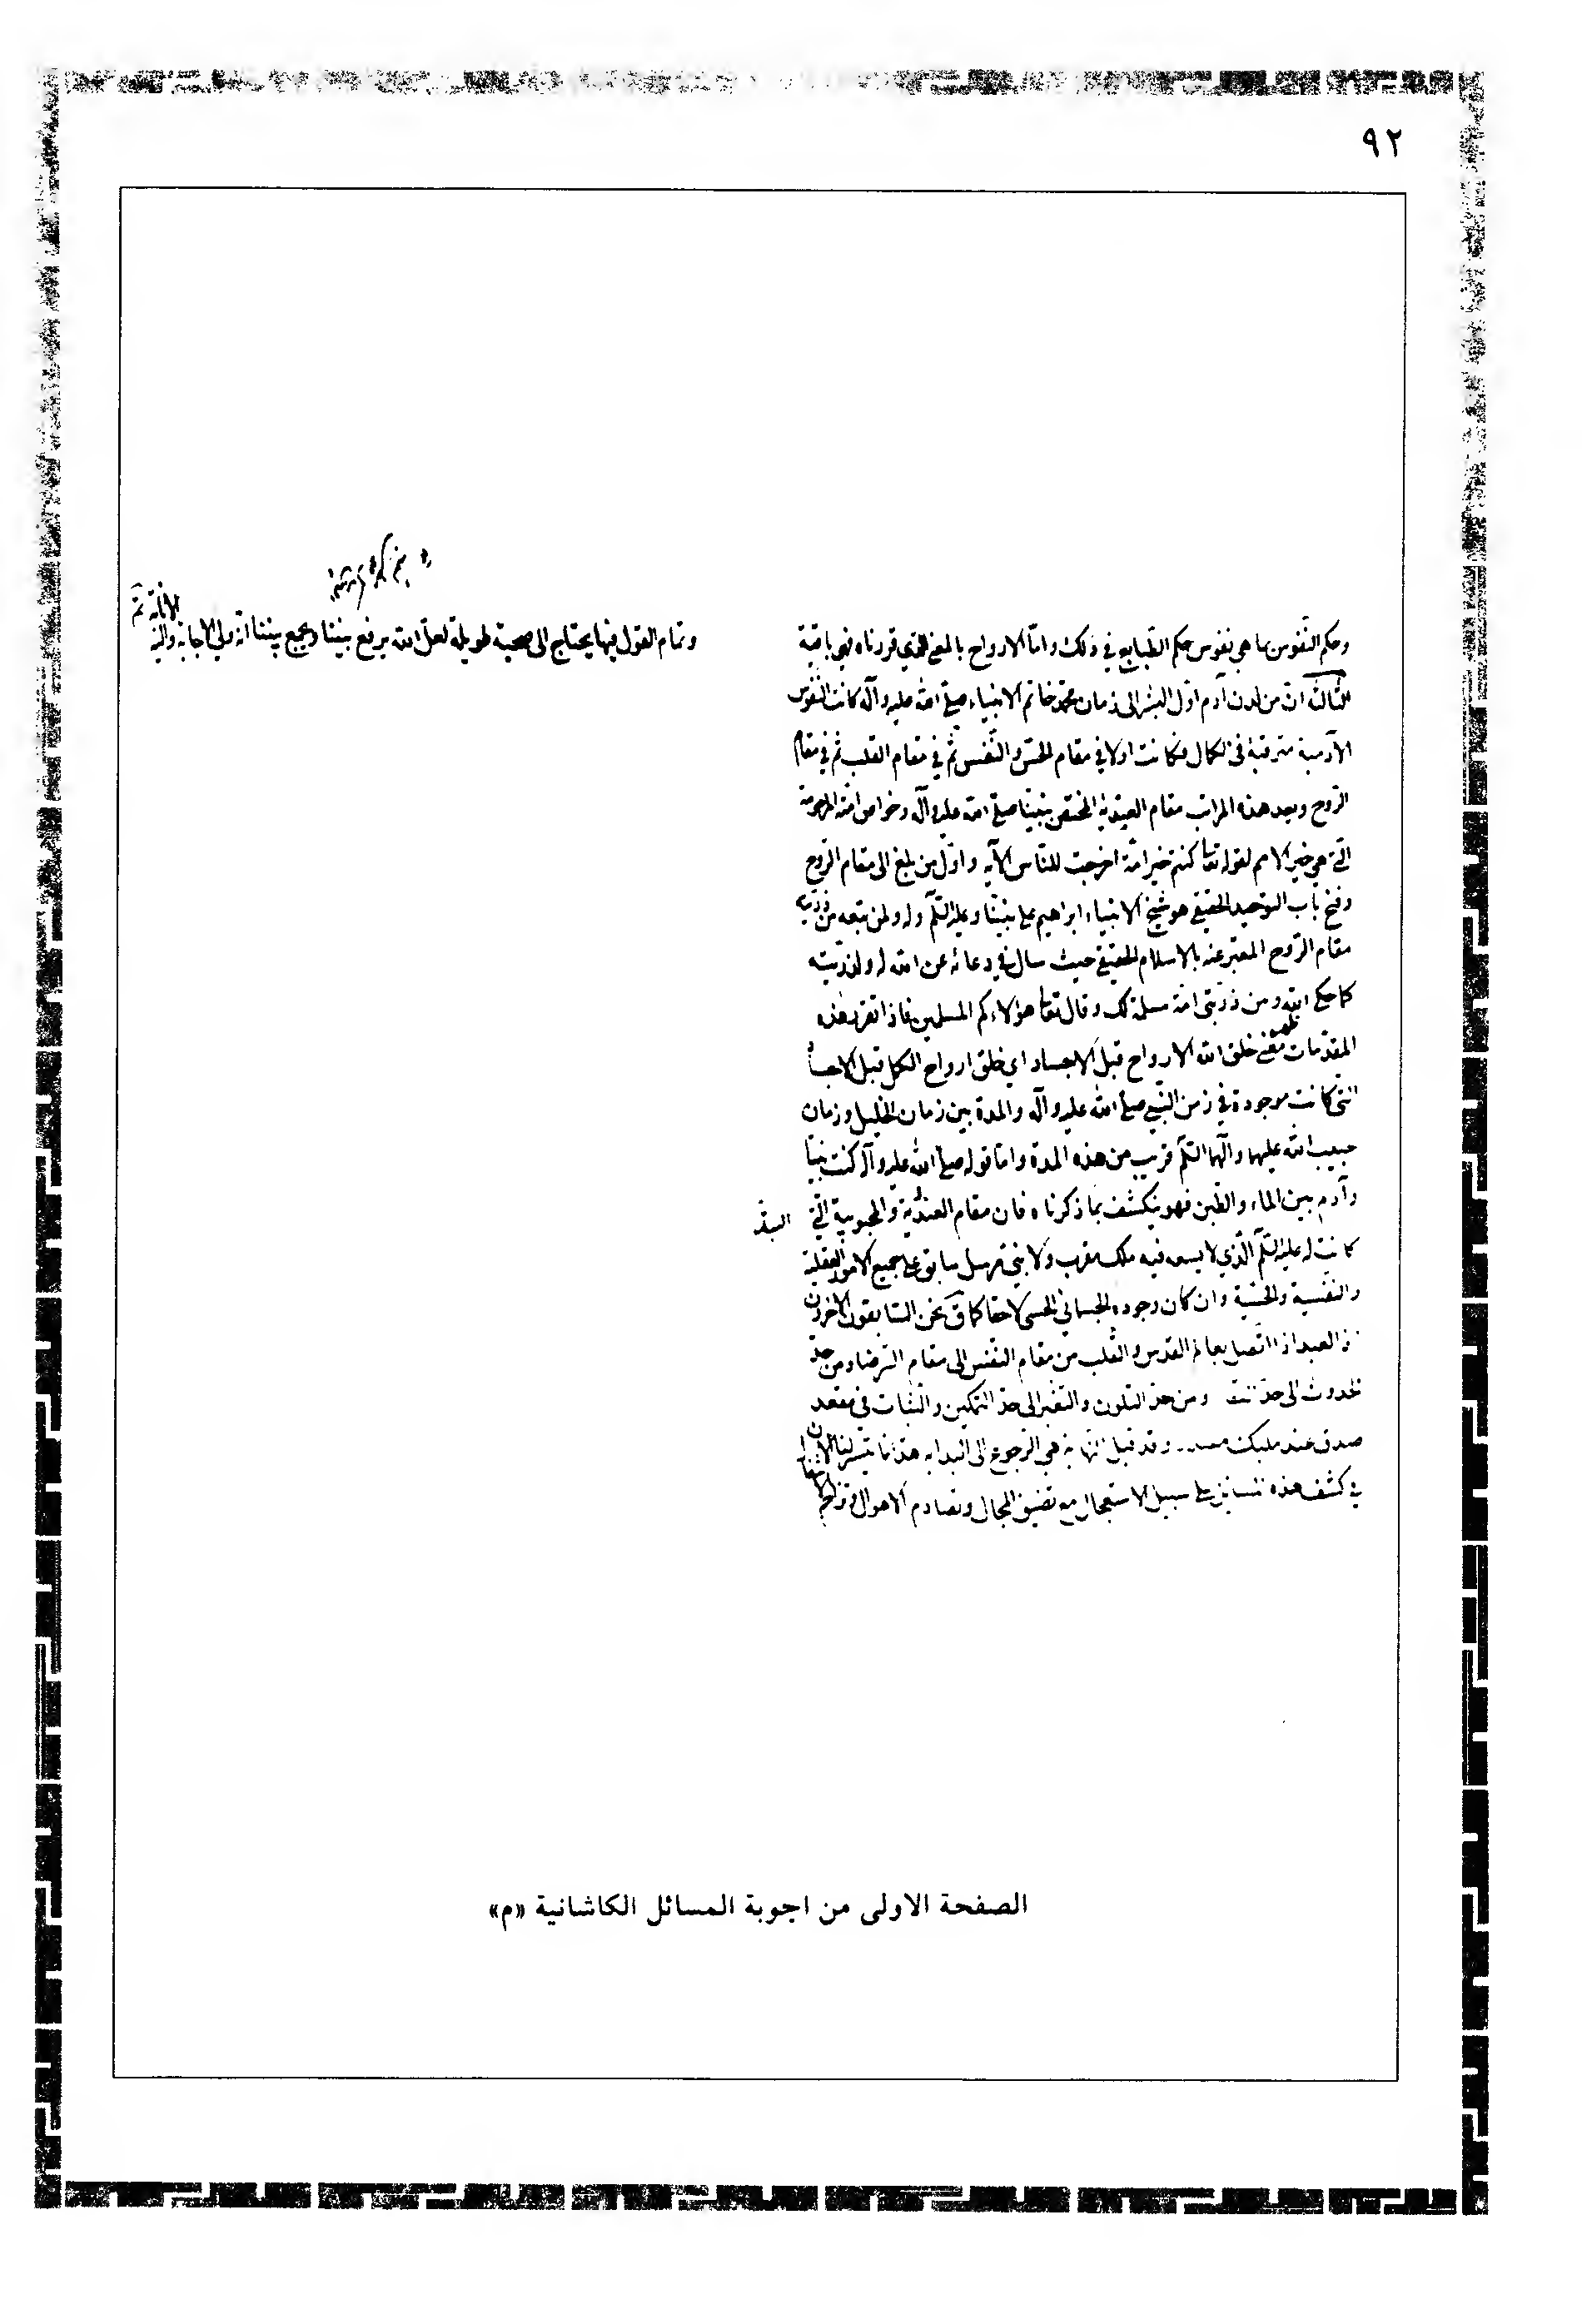 ٩٢
وحكم النفوس بما هي نفوس حكم الطبايع في ذلك واما الارواح بالمعنى الذي قررناه فهي باقية
الثالثة ان من لدن آدم اول البشر الى زمان محمد خاتم الانبياء صلى الله عليه وآله كانت النفوس
الآدمية مترقية فى الكمال فكانت اولا في مقام الحس والنفس ثم في مقام القلب ثم في مقام
الروح وبعد هذه المراتب مقام العندية المختص بنبينا صلى الله عليه وآله وخواص امته المرحومة
التي هي خير الامم لقوله تعا كنتم خير امة اخرجت للناس الآية واول من بلغ الى مقام الروح
وفتح باب التوحيد الحقيقي هو شيخ الانبياء ابراهيم على نبينا وعليه السلم وله ولمن تبعه من ذريته
مقام الروح المعبر عنه بالاسلام الحقيقي حيث سال في دعائه عن الله له ولذريته
كما حكى الله ومن ذريتي امة مسلمة لك وقال تعا هو سماكم المسلمين فاذا تقرر هذه
المقدمات ظهر معنى خلق الله الارواح قبل الاجساد اي خلق ارواح الكل قبل الاجساد
التى كانت موجودة في زمن النبي صلى الله عليه وآله والمدة بين زمان الخليل وزمان
حبيب الله عليهما وآلهما السلم قريب من هذه المدة واما قوله صلى الله عليه وآله كنت نبيا
وآدم بين الماء والطين فهو ينكشف بما ذكرناه فان مقام العندية والمحبوبية التي
كانت له عليه السلم الذي لا يسعه فيه ملك مقرب ولا نبي مرسل سابق على جميع الامور العقلية
والنفسية والحسية وان كان وجوده الجسماني الحسى لاحقا كما ق نحن السابقون الاخرون
العبد اذا اتصل بعالم القدس والقلب من مقام النفس الى مقام الرضا ومن حد
الحدوث الى حد ومن حد التلون والتغير الى حد التمكين والثبات في مقعد
صدق عند مليك وقد قيل النهاية هي الرجوع الى البداية هذا ما تيسر لنا الان
في كشف هذه المسائل على سبيل الاستعجال مع تضييق المجال وتصادم الاهوال وتزاحم
وتمام القول فيها يحتاج الى صحبة طويلة لعل الله يرفع بيننا ويجمع بيننا انه ولي الاجابة واليه الانابة تم
الصفحة الاولى من اجوبة المسائل الكاشانية «م»